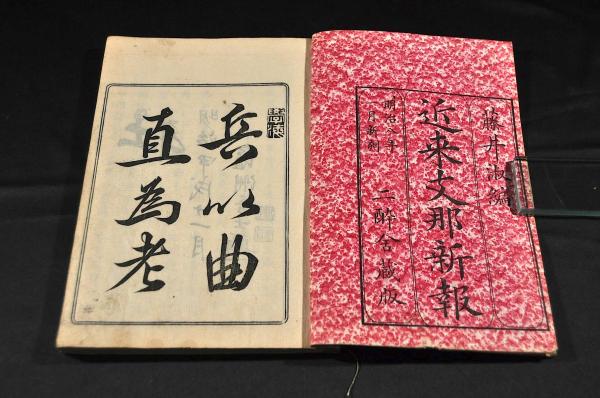 藤井淑編
近来支那新報
明治八年
一月新刻
二酔舎蔵版
兵以曲
直為老